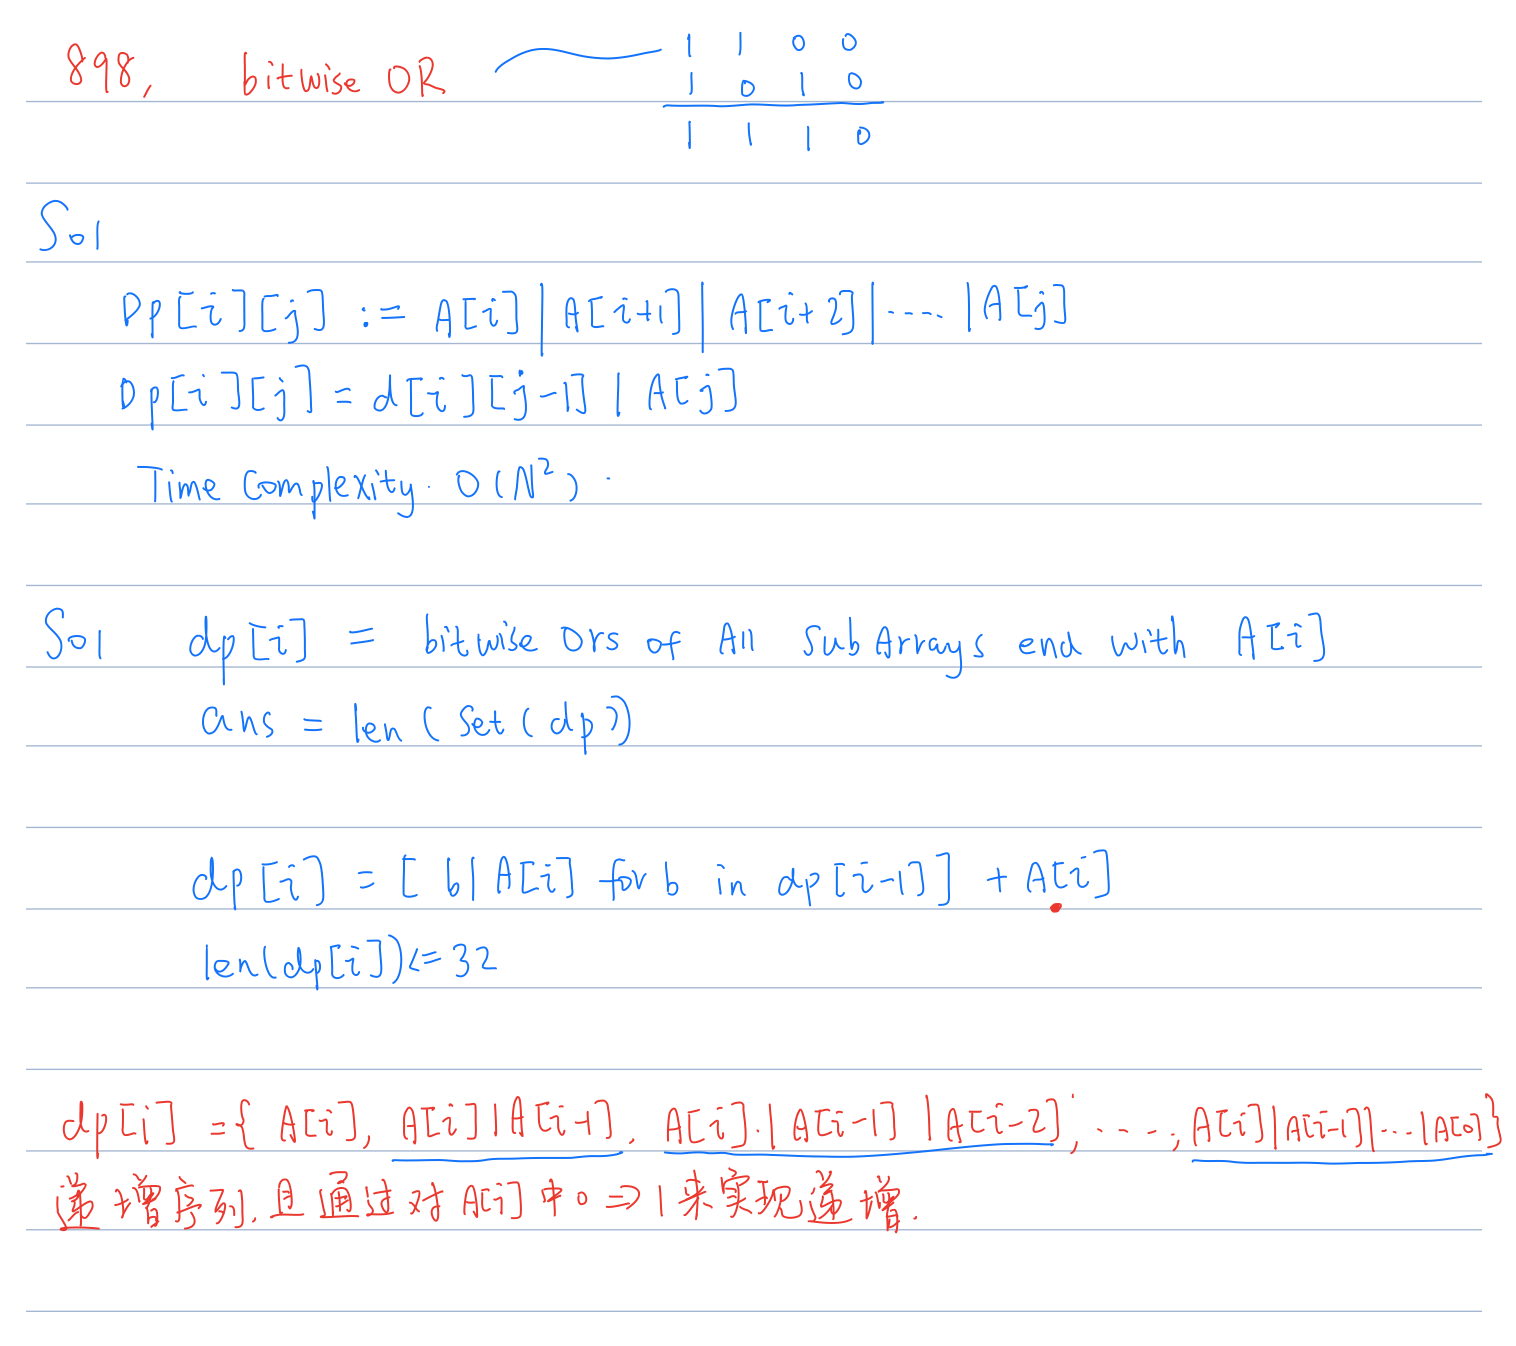 898, bitwise OR
1 1 0 0
1 0 1 0
1 1 1 0
Sol
Dp[i][j] := A[i] | A[i+1] | A[i+2] | .... | A[j]
Dp[i][j] = d[i][j-1] | A[j]
Time Complexity. O(N²).
Sol dp[i] = bitwise Ors of All SubArrays end with A[i]
ans = len(set(dp))
dp[i] = [ b| A[i] for b in dp[i-1]] + A[i]
len(dp[i])<=32
dp[i] ={ A[i], A[i]|A[i-1], A[i].| A[i-1] |A[i-2], ...., A[i]|A[i-1]|...|A[0]}
递增序列, 且通过对A[i]中0⇒1来实现递增.